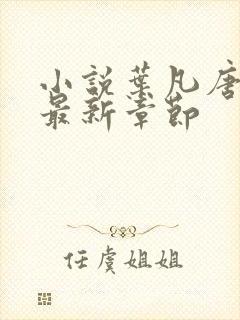 小説葉凡唐
最新章節
任虞姐姐